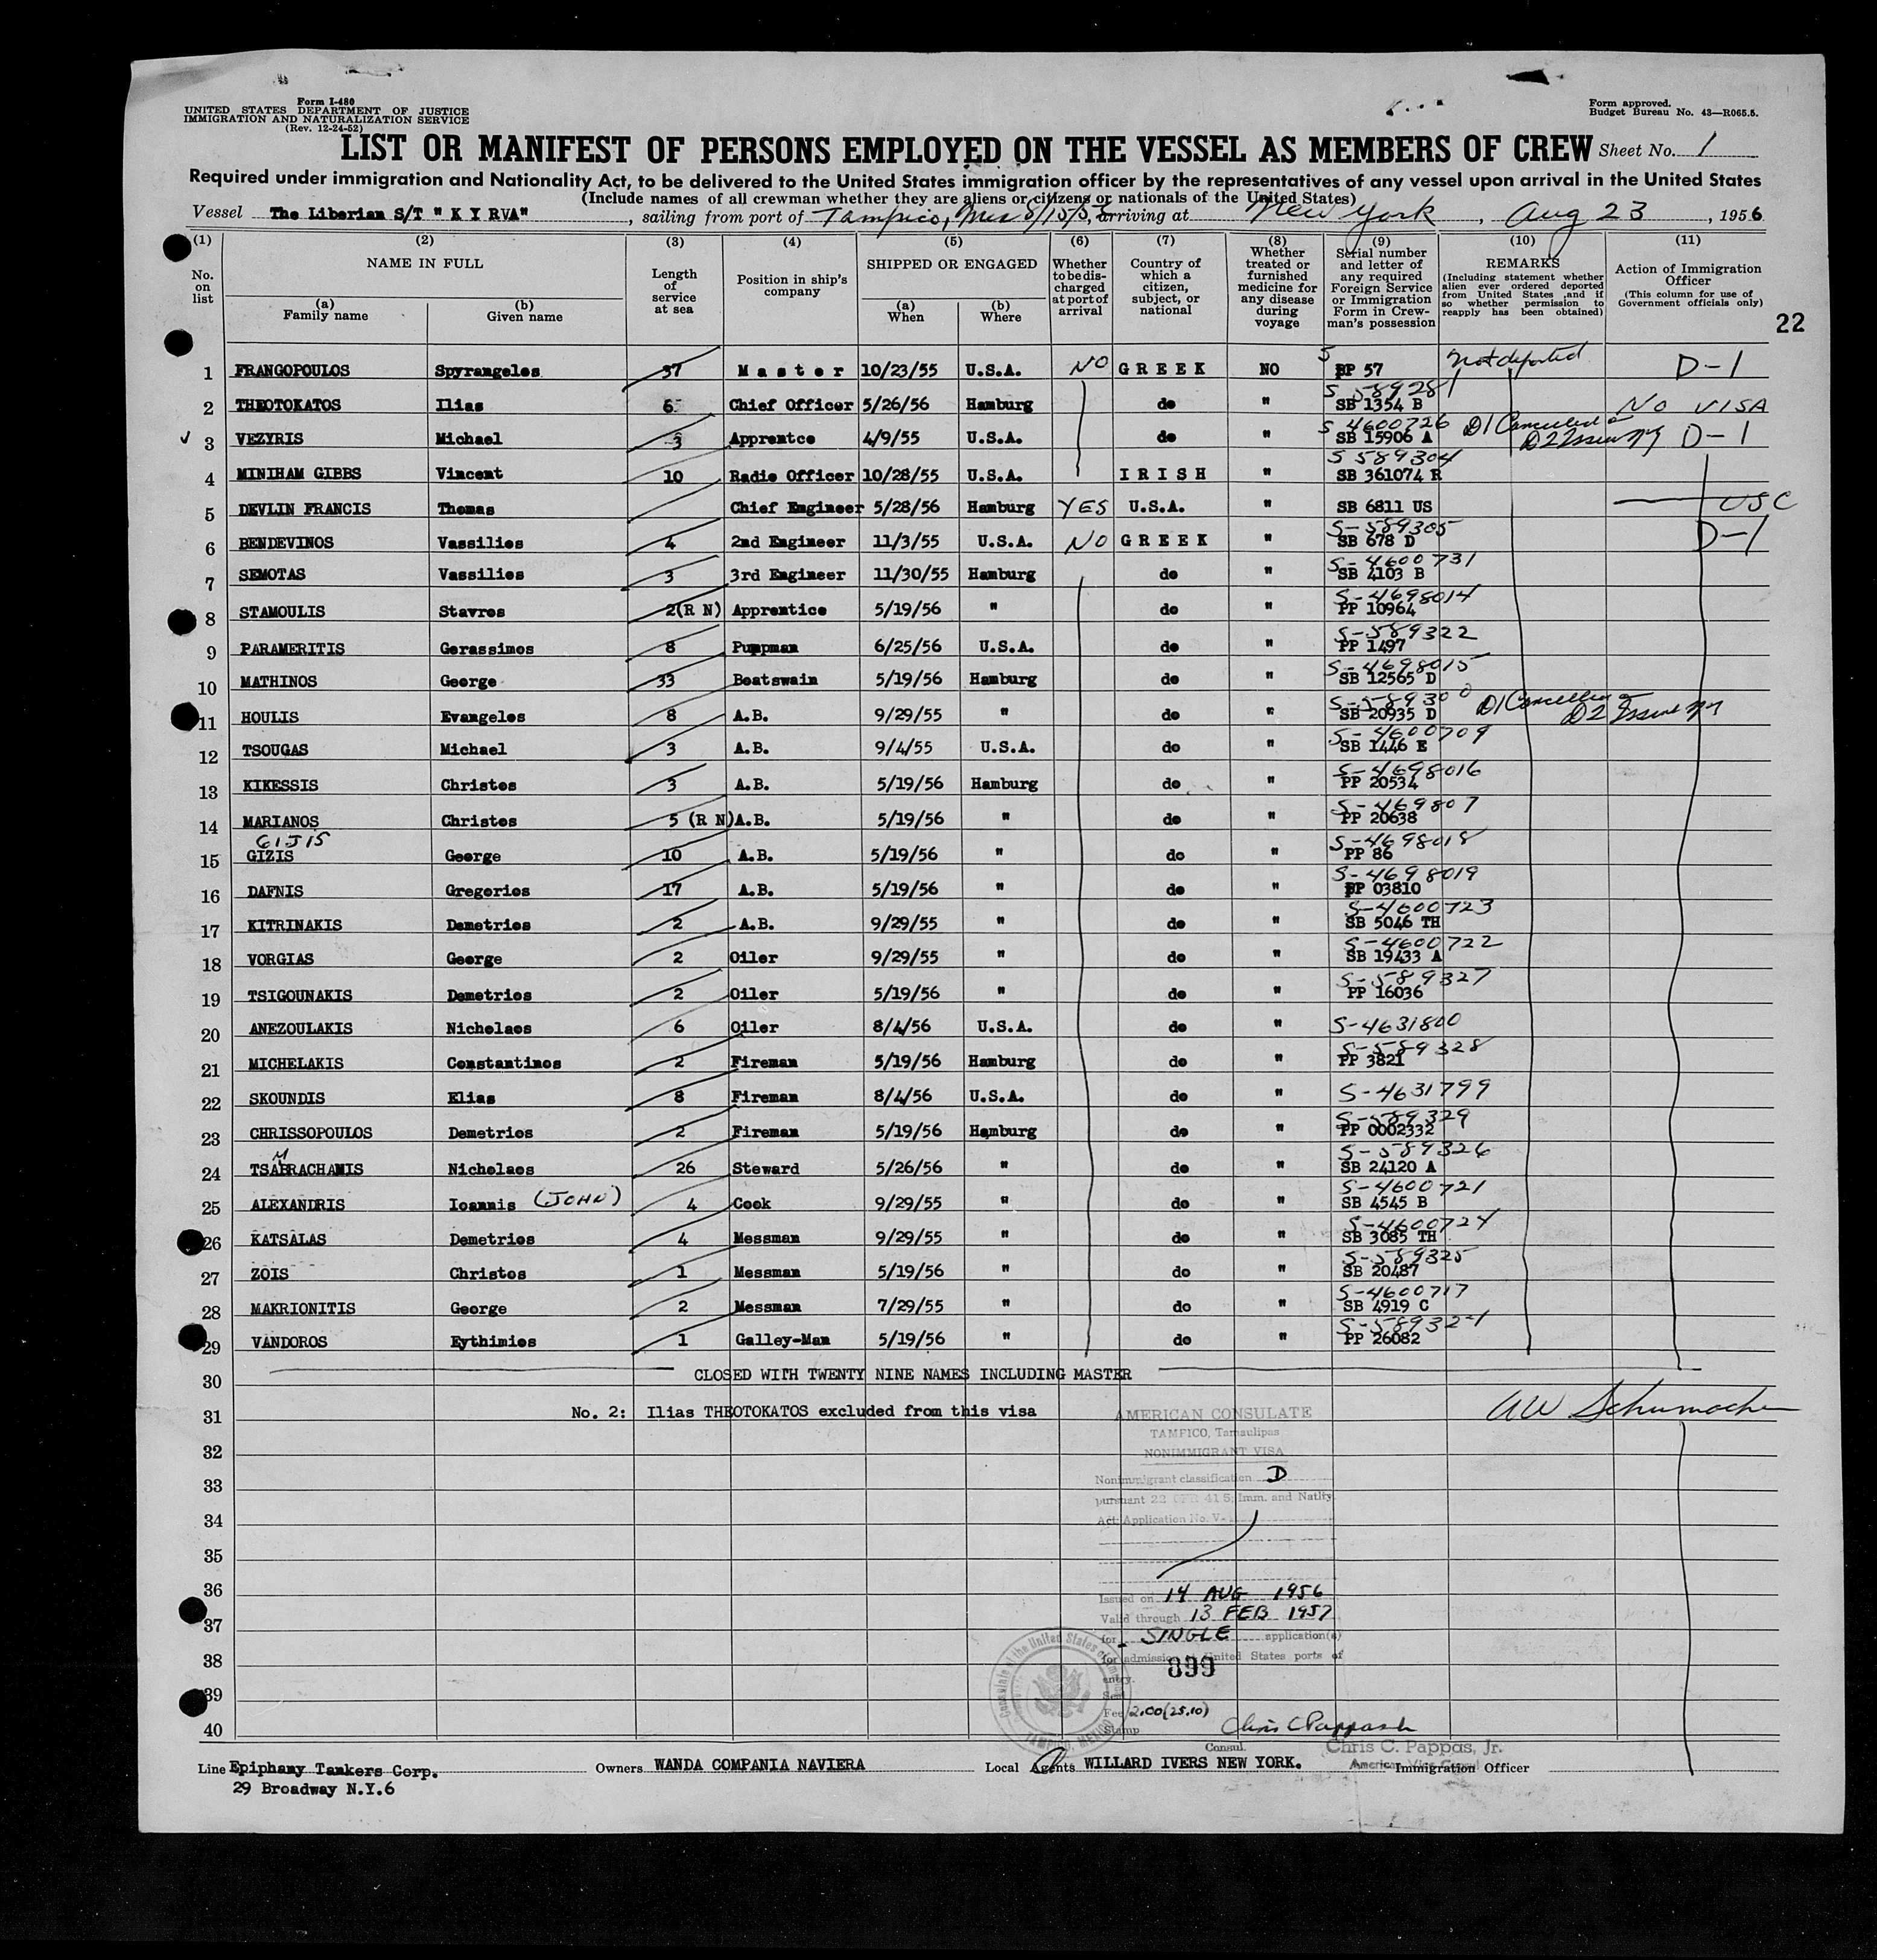 Form I-480
UNITED STATES DEPARTMENT OF JUSTICE
IMMIGRATION AND NATURALIZATION SERVICE
(Rev. 12-24-52)
Form approved.
Budget Bureau No. 43—R065.5.
LIST OR MANIFEST OF PERSONS EMPLOYED ON THE VESSEL AS MEMBERS OF CREW Sheet No. 1
Required under immigration and Nationality Act, to be delivered to the United States immigration officer by the representatives of any vessel upon arrival in the United States
(Include names of all crewman whether they are aliens or citizens or nationals of the United States)
Vessel The Liberian S/T " K Y RVA" , sailing from port of Tampico, Mex 8/15/56, arriving at New York , Aug 23 , 1956
(1) (2) (3) (4) (5) (6) (7) (8) (9) (10) (11)
No. on list
NAME IN FULL
(a) Family name
(b) Given name
Length of service at sea
Position in ship's company
SHIPPED OR ENGAGED
(a) When
(b) Where
Whether to be discharged at port of arrival
Country of which a citizen, subject, or national
Whether treated or furnished medicine for any disease during voyage
Serial number and letter of any required Foreign Service or Immigration Form in Crewman's possession
REMARKS
(Including statement whether alien ever ordered deported from United States and if so whether permission to reapply has been obtained)
Action of Immigration Officer
(This column for use of Government officials only)
22
1 FRANGOPOULOS Spyrangelos 37 Master 10/23/55 U.S.A. NO GREEK NO S PP 57 Not deported D-1
2 THEOTOKATOS Ilias 6 Chief Officer 5/26/56 Hamburg do " S 589281 SB 1354 B NO VISA
3 VEZYRIS Michael 3 Apprentce 4/9/55 U.S.A. do " S 4600726 SB 15906 A D1 Cancelled D2 Issued NY D-1
4 MINIHAM GIBBS Vincent 10 Radio Officer 10/28/55 U.S.A. IRISH " S 589304 SB 361074 R
5 DEVLIN FRANCIS Thomas Chief Engineer 5/28/56 Hamburg YES U.S.A. " SB 6811 US USC
6 BENDEVINOS Vassilios 4 2nd Engineer 11/3/55 U.S.A. NO GREEK " S-589305 SB 678 D D-1
7 SEMOTAS Vassilios 3 3rd Engineer 11/30/55 Hamburg do " S-4600731 SB 4103 B
8 STAMOULIS Stavros 2(R N) Apprentice 5/19/56 " do " S-4698014 PP 10964
9 PARAMERITIS Gerassimos 8 Pumpman 6/25/56 U.S.A. do " S-589322 PP 1497
10 MATHINOS George 33 Boatswain 5/19/56 Hamburg do " S-4698015 SB 12565 D
11 HOULIS Evangelos 8 A.B. 9/29/55 " do " S-589300 SB 20935 D D1 Cancelled D2 Issued NY
12 TSOUGAS Michael 3 A.B. 9/4/55 U.S.A. do " S-4600709 SB 1446 E
13 KIKESSIS Christos 3 A.B. 5/19/56 Hamburg do " S-4698016 PP 20534
14 MARIANOS Christos 5 (R N) A.B. 5/19/56 " do " S-469807 PP 20638
GIJIS
15 GIZIS George 10 A.B. 5/19/56 " do " S-4698018 PP 86
16 DAFNIS Gregorios 17 A.B. 5/19/56 " do " S-4698019 PP 03810
17 KITRINAKIS Demetrios 2 A.B. 9/29/55 " do " S-4600723 SB 5046 TH
18 VORGIAS George 2 Oiler 9/29/55 " do " S-4600722 SB 19433 A
19 TSIGOUNAKIS Demetrios 2 Oiler 5/19/56 " do " S-589327 PP 16036
20 ANEZOULAKIS Nicholaos 6 Oiler 8/4/56 U.S.A. do " S-4631800
21 MICHELAKIS Constantinos 2 Fireman 5/19/56 Hamburg do " S-589328 PP 3821
22 SKOUNDIS Elias 8 Fireman 8/4/56 U.S.A. do " S-4631799
23 CHRISSOPOULOS Demetrios 2 Fireman 5/19/56 Hamburg do " S-589329 PP 0002332
24 TSAMRACHANIS Nicholaos 26 Steward 5/26/56 " do " S-589326 SB 24120 A
25 ALEXANDRIS Ioannis (JOHN) 4 Cook 9/29/55 " do " S-4600721 SB 4545 B
26 KATSALAS Demetrios 4 Messman 9/29/55 " do " S-4600724 SB 3085 TH
27 ZOIS Christos 1 Messman 5/19/56 " do " S-589325 SB 20487
28 MAKRIONITIS George 2 Messman 7/29/55 " do " S-4600717 SB 4919 C
29 VANDOROS Eythimios 1 Galley-Man 5/19/56 " do " S-589324 PP 26082
30 CLOSED WITH TWENTY NINE NAMES INCLUDING MASTER
31 No. 2: Ilias THEOTOKATOS excluded from this visa AW Schumacher
AMERICAN CONSULATE
TAMPICO, Tamaulipas
32 NONIMMIGRANT VISA
33 Nonimmigrant classification D
pursuant 22 CFR 41.5; Imm. and Natlty
34 Act Application No. V-
35
36 Issued on 14 AUG 1956
37 Valid through 13 FEB 1957
for SINGLE application(s)
38 for admission at United States ports of
entry. 899
39 Seal
Fee 2.00 (25.10)
40 Stamp Chris C Pappas Jr
TAMPICO, MEXICO
Consul.
Chris C. Pappas, Jr.
American Vice Consul
Line Epiphany Tankers Corp. Owners WANDA COMPANIA NAVIERA Local Agents WILLARD IVERS NEW YORK. Immigration Officer
29 Broadway N.Y.6